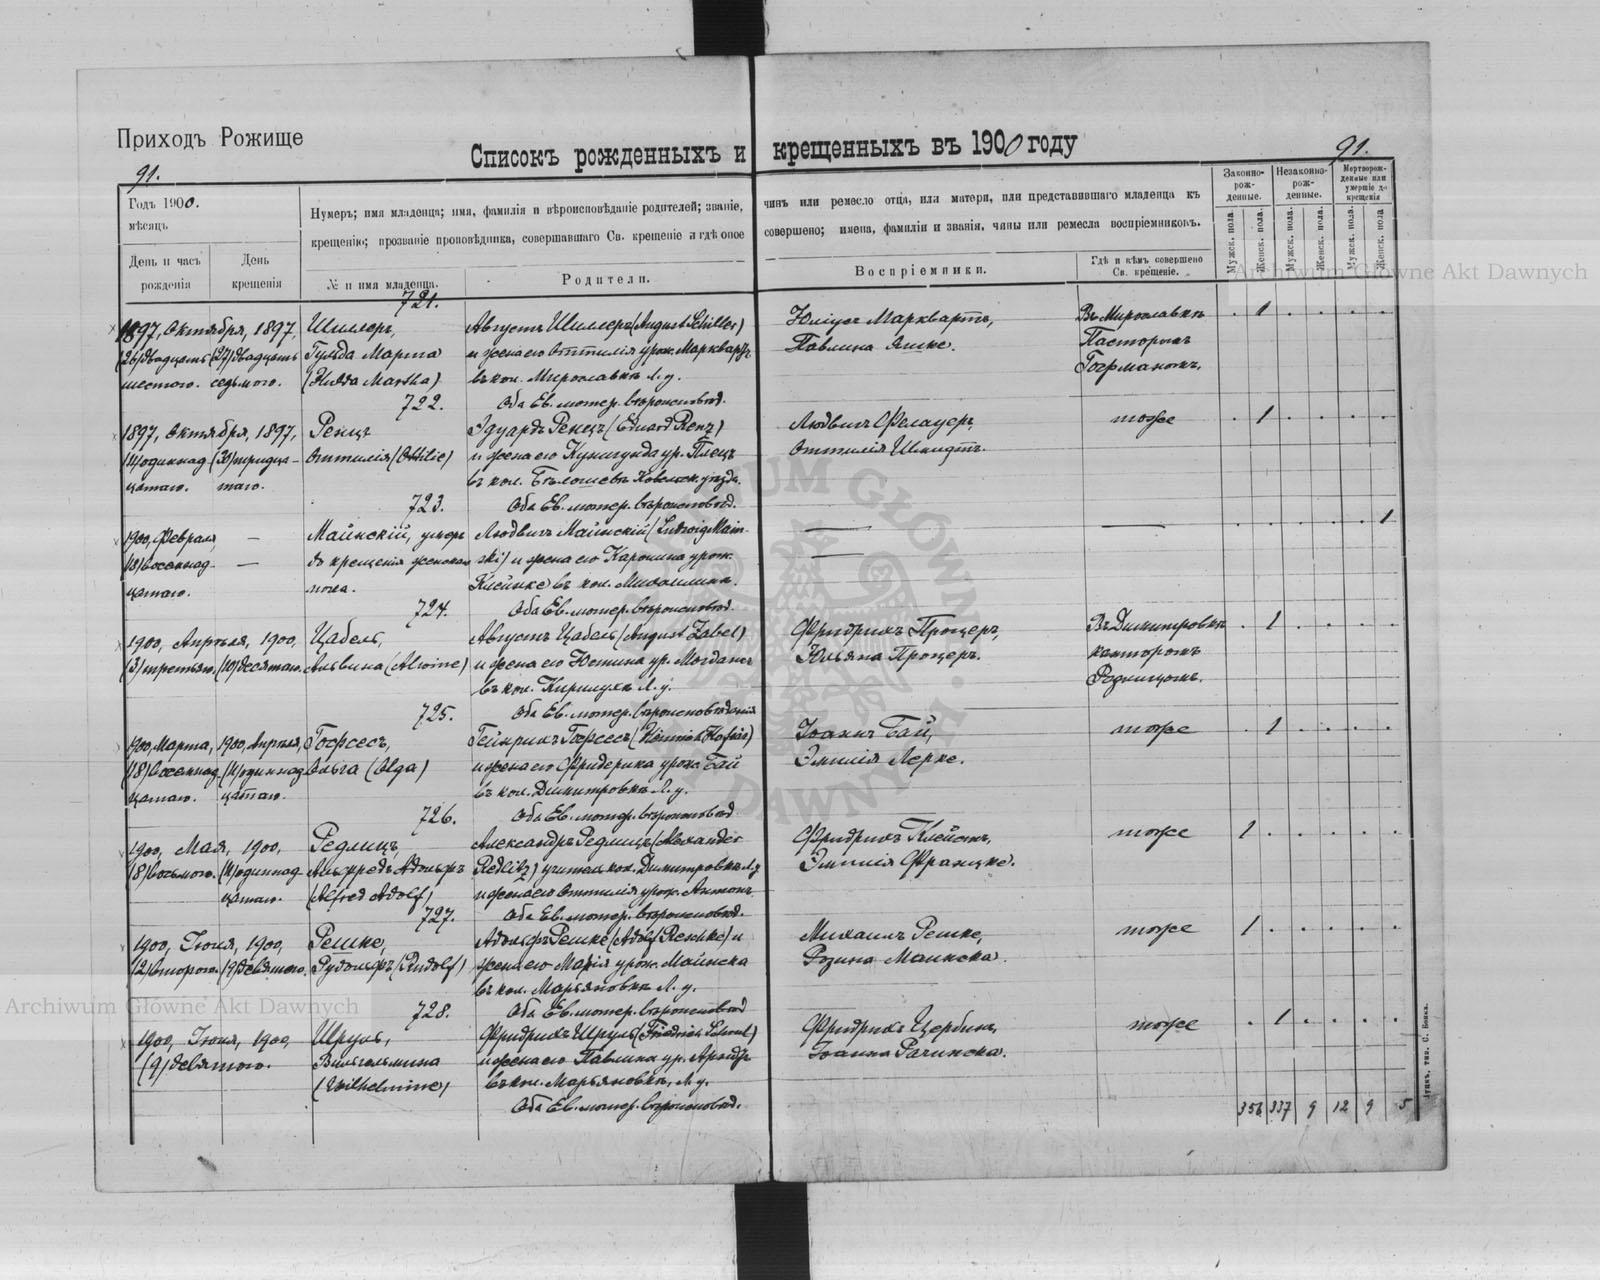 Приходъ Рожище
Списокъ рожденныхъ и крещенныхъ въ 1900 году
91.
91.
Годъ 1900.
мѣсяцъ
День и часъ рожденія
День крещенія
Нумеръ; имя младенца; имя, фамилія и вѣроисповѣданіе родителей; званіе, чинъ или ремесло отца, или матери, или представившаго младенца къ
крещенію; прозваніе проповѣдника, совершавшаго Св. крещеніе и гдѣ оное совершено; имена, фамиліи и званія, чины или ремесла воспріемниковъ.
№ и имя младенца.
Родители.
Воспріемники.
Гдѣ и кѣмъ совершено Св. крещеніе.
Законно-рож-денные.
Незаконно-рож-денные.
Мертворож-денные или умершіе до крещенія
Мужск. пола.
Женск. пола.
Мужск. пола.
Женск. пола.
Мужск. пола.
Женск. пола
721.
1897, Октября, 1897, Шиллеръ, Августъ Шиллеръ (August Schiller) Юліусъ Марквартъ, Въ Мирославкѣ . 1 . . . .
(26) двадцать (27) двадцать Гульда Марта и жена его Оттилія урож. Марквартъ Павлина Яшке. Пасторомъ
шестого. седьмого. (Hulda Martha) въ кол. Мирославкѣ Л. у. Гоерманомъ.
722. Оба Ев. лютер. вѣроисповѣд.
1897, Октября, 1897, Ренцъ Эдуардъ Ренцъ (Eduard Renz) Людвигъ Фелауеръ, тоже . 1 . . . .
(11) одиннад- (30) тридца- Оттилія (Ottilie) и жена его Кунигунда ур. Плецъ Оттилія Шмидтъ.
цатаго. таго. въ кол. Ковельск. уѣзда.
723. Оба Ев. лютер. вѣроисповѣд.
1900, Февраля, — Маинскій, умеръ Людвигъ Маинскій (Ludwig Main- — — . . . . . 1
(18) восемнад- — до крещенія женскаго ski) и жена его Каролина урож. —
цатаго. пола. Клейнке въ кол. Михалинка.
724. Оба Ев. лютер. вѣроисповѣд.
1900, Апрѣля, 1900, Цабель, Августъ Цабель (August Zabel) Фридрихъ Процеръ, Въ Димитровкѣ . 1 . . . .
(3) третьяго, (10) десятаго. Альвина (Alwine) и жена его Юстина ур. Юльяна Процеръ. канторомъ
въ кол. Кирилукѣ Л. у.
725. Оба Ев. лютер. вѣроисповѣданія
1900, Марта, 1900, Апрѣля, Гофсесъ, Гейнрихъ Гофсесъ (Heinrich Hofses) Іоганъ Бай, тоже . 1 . . . .
(18) восемнад- (11) одиннад- Ольга (Olga) и жена его Фридерика урож. Бай Эмилія Лерке.
цатаго. цатаго. въ кол. Димитровкѣ Л. у.
726. Оба Ев. лютер. вѣроисповѣд
1900, Мая, 1900, Редлицъ, Александръ Редлицъ (Alexander Фридрихъ Клейстъ, тоже 1 . . . . .
(8) восьмого. (11) одиннад- Альфредъ Адольфъ Redlitz) учитель кол. Димитровкѣ Л. у. Эмилія Францке.
цатаго. (Alfred Adolf) и жена его Оттилія урож. Антонъ
727. Оба Ев. лютер. вѣроисповѣд.
1900, Іюня, 1900, Решке, Адольфъ Решке (Adolf Reschke) и Михаилъ Решке, тоже 1 . . . . .
(2) второго. (9) девятого. Рудольфъ (Rudolf) жена его Марія урож. Маинска Розина Маинска.
въ кол. Марьяновкѣ Л. у.
728. Оба Ев. лютер. вѣроисповѣд
1900, Іюня, 1900, Шруль, Фридрихъ Шруль (Friedrich Schrul) Фридрихъ Цербинъ, тоже . 1 . . . .
(9) девятого. Вильгельмина и жена его Павлина ур. Арндтъ Іоанна Рачинска.
(Wilhelmine) въ кол. Марьяновкѣ, Л. у.
Оба Ев. лютер. вѣроисповѣд.
356 337 9 12 9 5
Archiwum Główne Akt Dawnych
Archiwum Główne Akt Dawnych